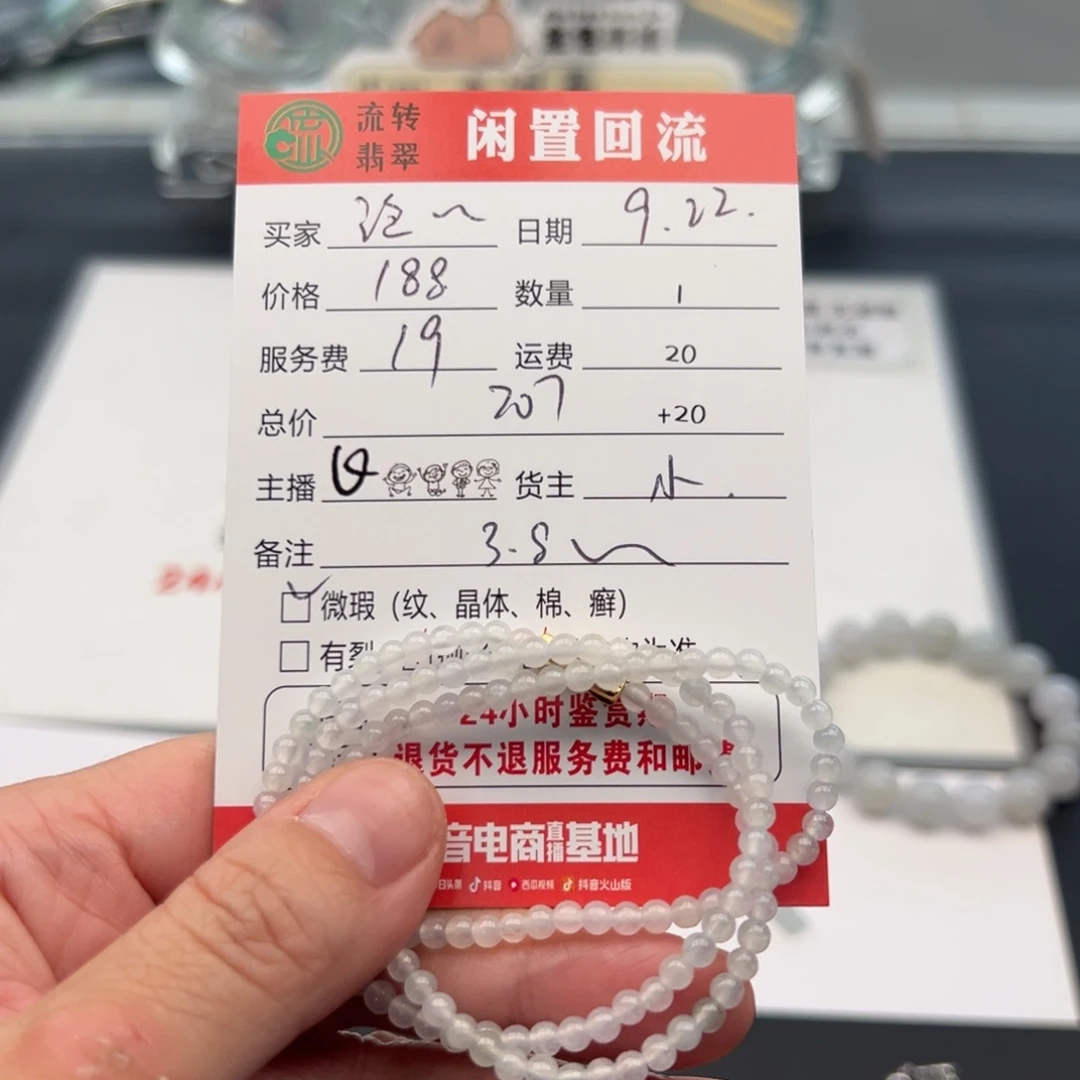 流转
翡翠
闲置回流
买家 日期 9.22.
价格 188 数量 1
服务费 19 运费 20
总价 207 +20
主播 货主 小.
备注 3.8
微瑕（纹、晶体、棉、癣）
有裂
24小时鉴赏期
退货不退服务费和邮费
音电商直播基地
抖音 西瓜视频 抖音火山版